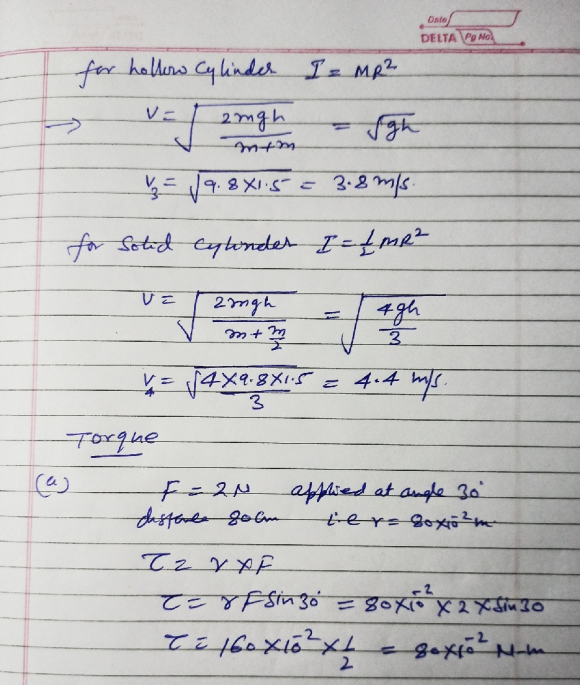 Date
DELTA Pg No.
for hollow cylinder I = MR²
→ V = √(2mgh / (m+m)) = √gh
V₃ = √(9.8×1.5) = 3.8 m/s.
for Solid cylinder I = 1/2 MR²
V = √(2mgh / (m + m/2)) = √(4gh / 3)
V₄ = √(4×9.8×1.5 / 3) = 4.4 m/s.
Torque
(a) F = 2N applied at angle 30°
distance 80cm i.e r = 80×10⁻² m
τ = r × F
τ = r F Sin30° = 80×10⁻² × 2 × Sin30
τ = 160 × 10⁻² × 1/2 = 80×10⁻² N-m